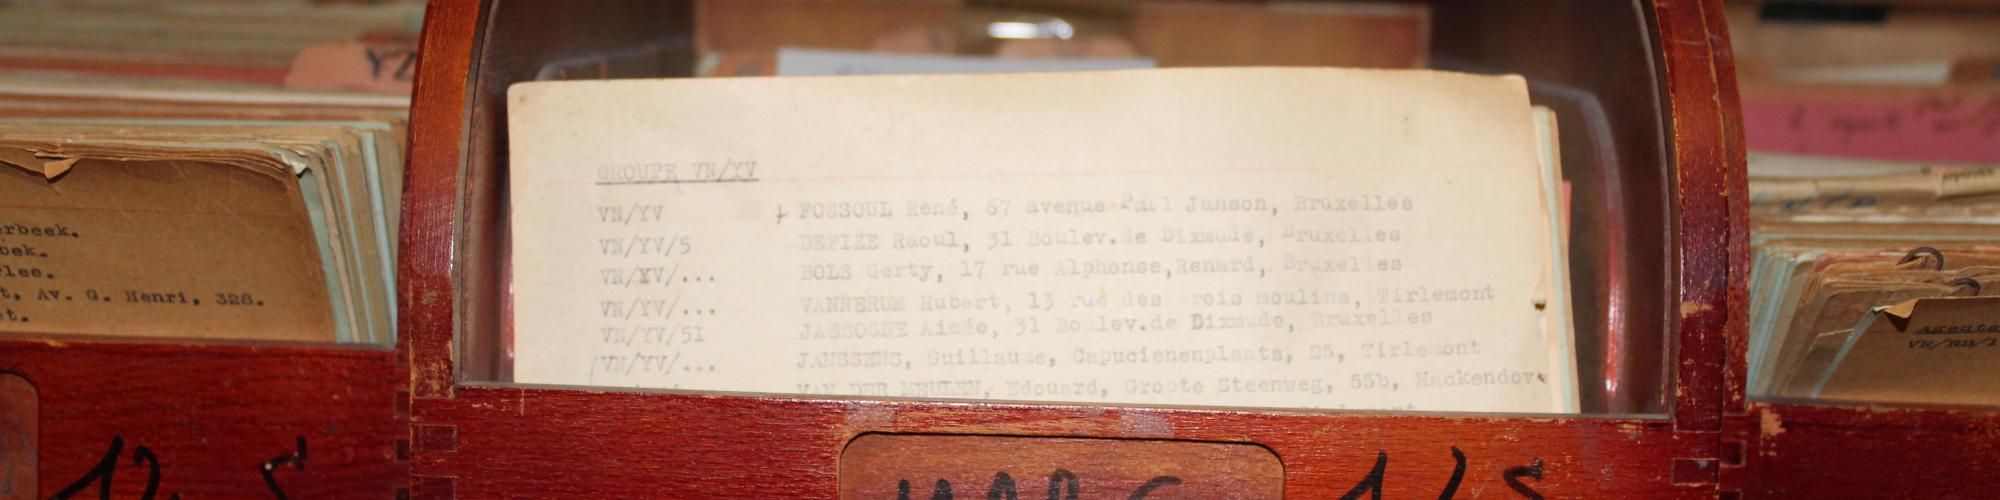 YZ
erbeek.
bek.
rlee.
t, Av. G. Henri, 328.
et.
GROUPE VN/YV
VN/YV FOSSOUL René, 67 avenue Paul Janson, Bruxelles
VN/YV/5 DEFIZE Raoul, 31 Boulev.de Dixmude, Bruxelles
VN/YV/... BOLS Gerty, 17 rue Alphonse,Renard, Bruxelles
VN/YV/... VANNERUM Hubert, 13 rue des rois moulins, Tirlemont
VN/YV/51 JASSOGNE Aimée, 31 Boulev.de Dixmude, Bruxelles
VN/YV/... JANSSENS, Guillaume, Capucienenplaats, 25, Tirlemont
VAN DER MEULEN, Edouard, Groote Steenweg, 55b, Hackendov
MARC